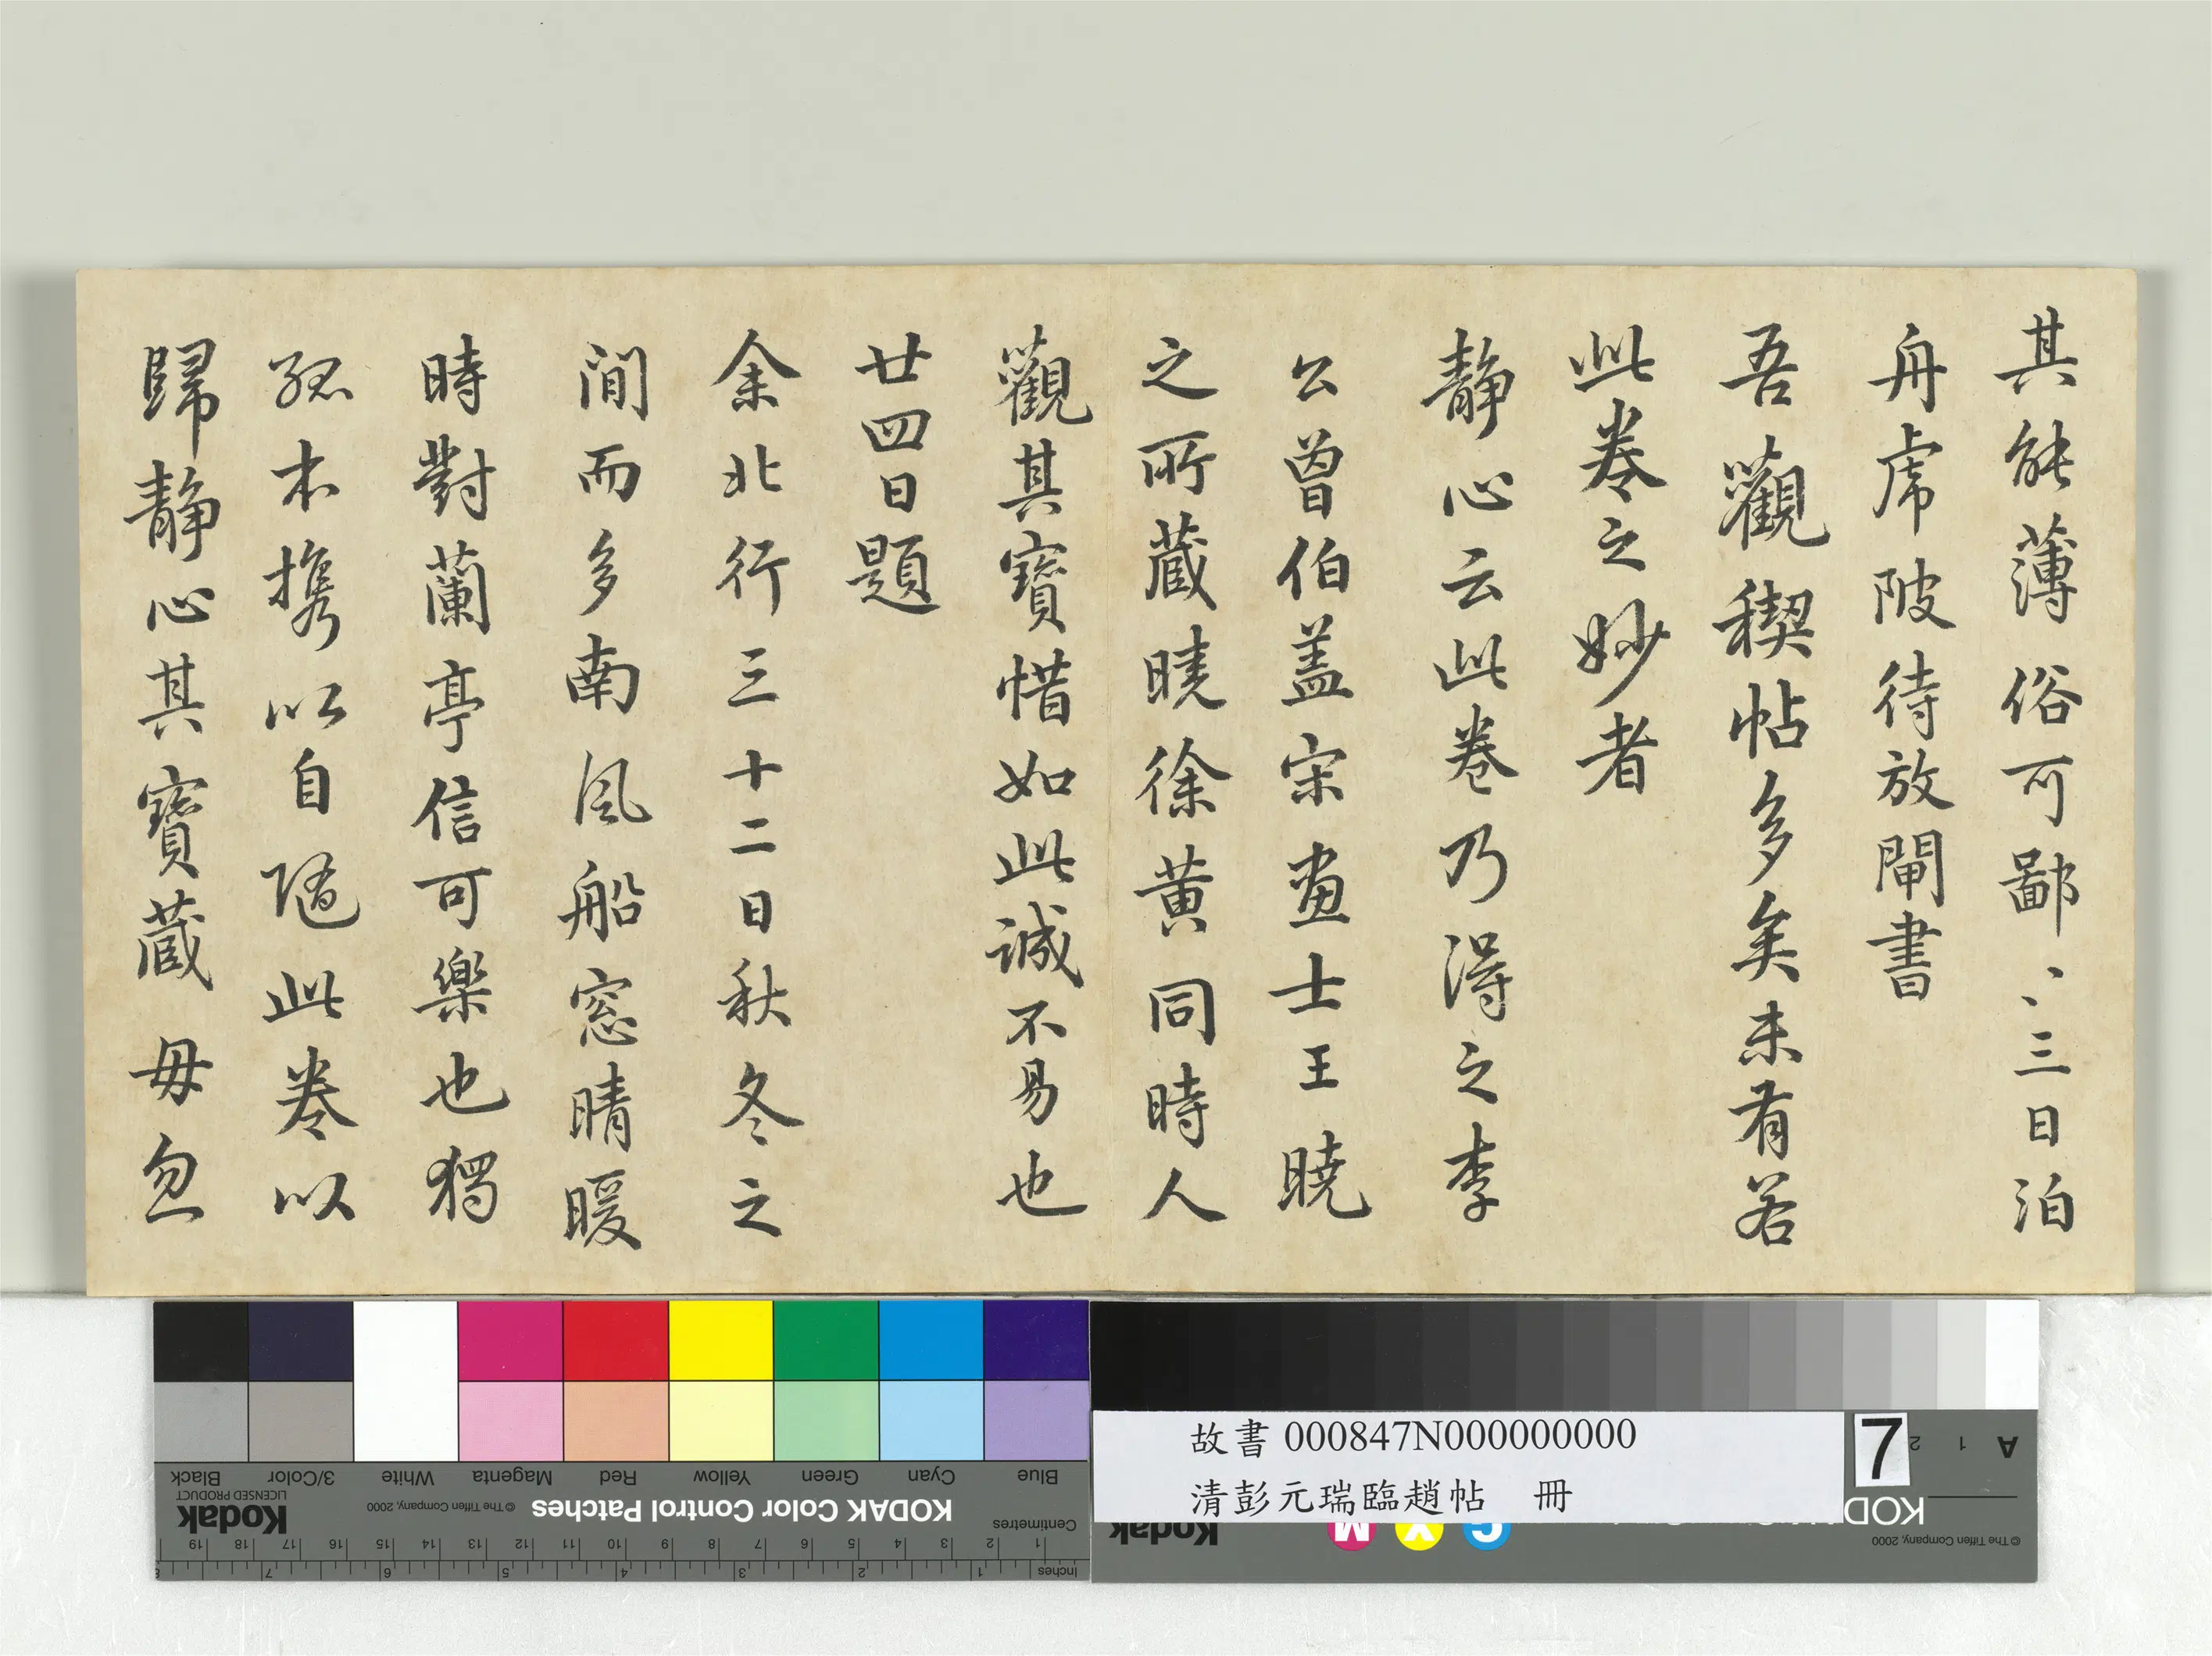 其能薄俗可鄙〻三日泊
舟虎陂待放閘書
吾觀稧帖多矣未有若
此卷之妙者
靜心云此卷乃得之李
公曾伯盖宋畫士王曉
之所蔵曉徐黄同時人
觀其寶惜如此誠不易也
廿四日題
余北行三十二日秋冬之
間而多南風船窓晴暖
時對蘭亭信可樂也獨
孤本攜以自隨此卷以
歸靜心其寶蔵毋忽
Black
3/Color
White
Magenta
Red
Yellow
Green
Cyan
Blue
Kodak
LICENSED PRODUCT
© The Tiffen Company, 2000
KODAK Color Control Patches
Centimetres
1 2 3 4 5 6 7 8 9 10 11 12 13 14 15 16 17 18 19
Inches
1 2 3 4 5 6 7 8
故書 000847N000000000
清彭元瑞臨趙帖 冊
7
A 1 2
KOD
Kodak
C Y M
© The Tiffen Company, 2000